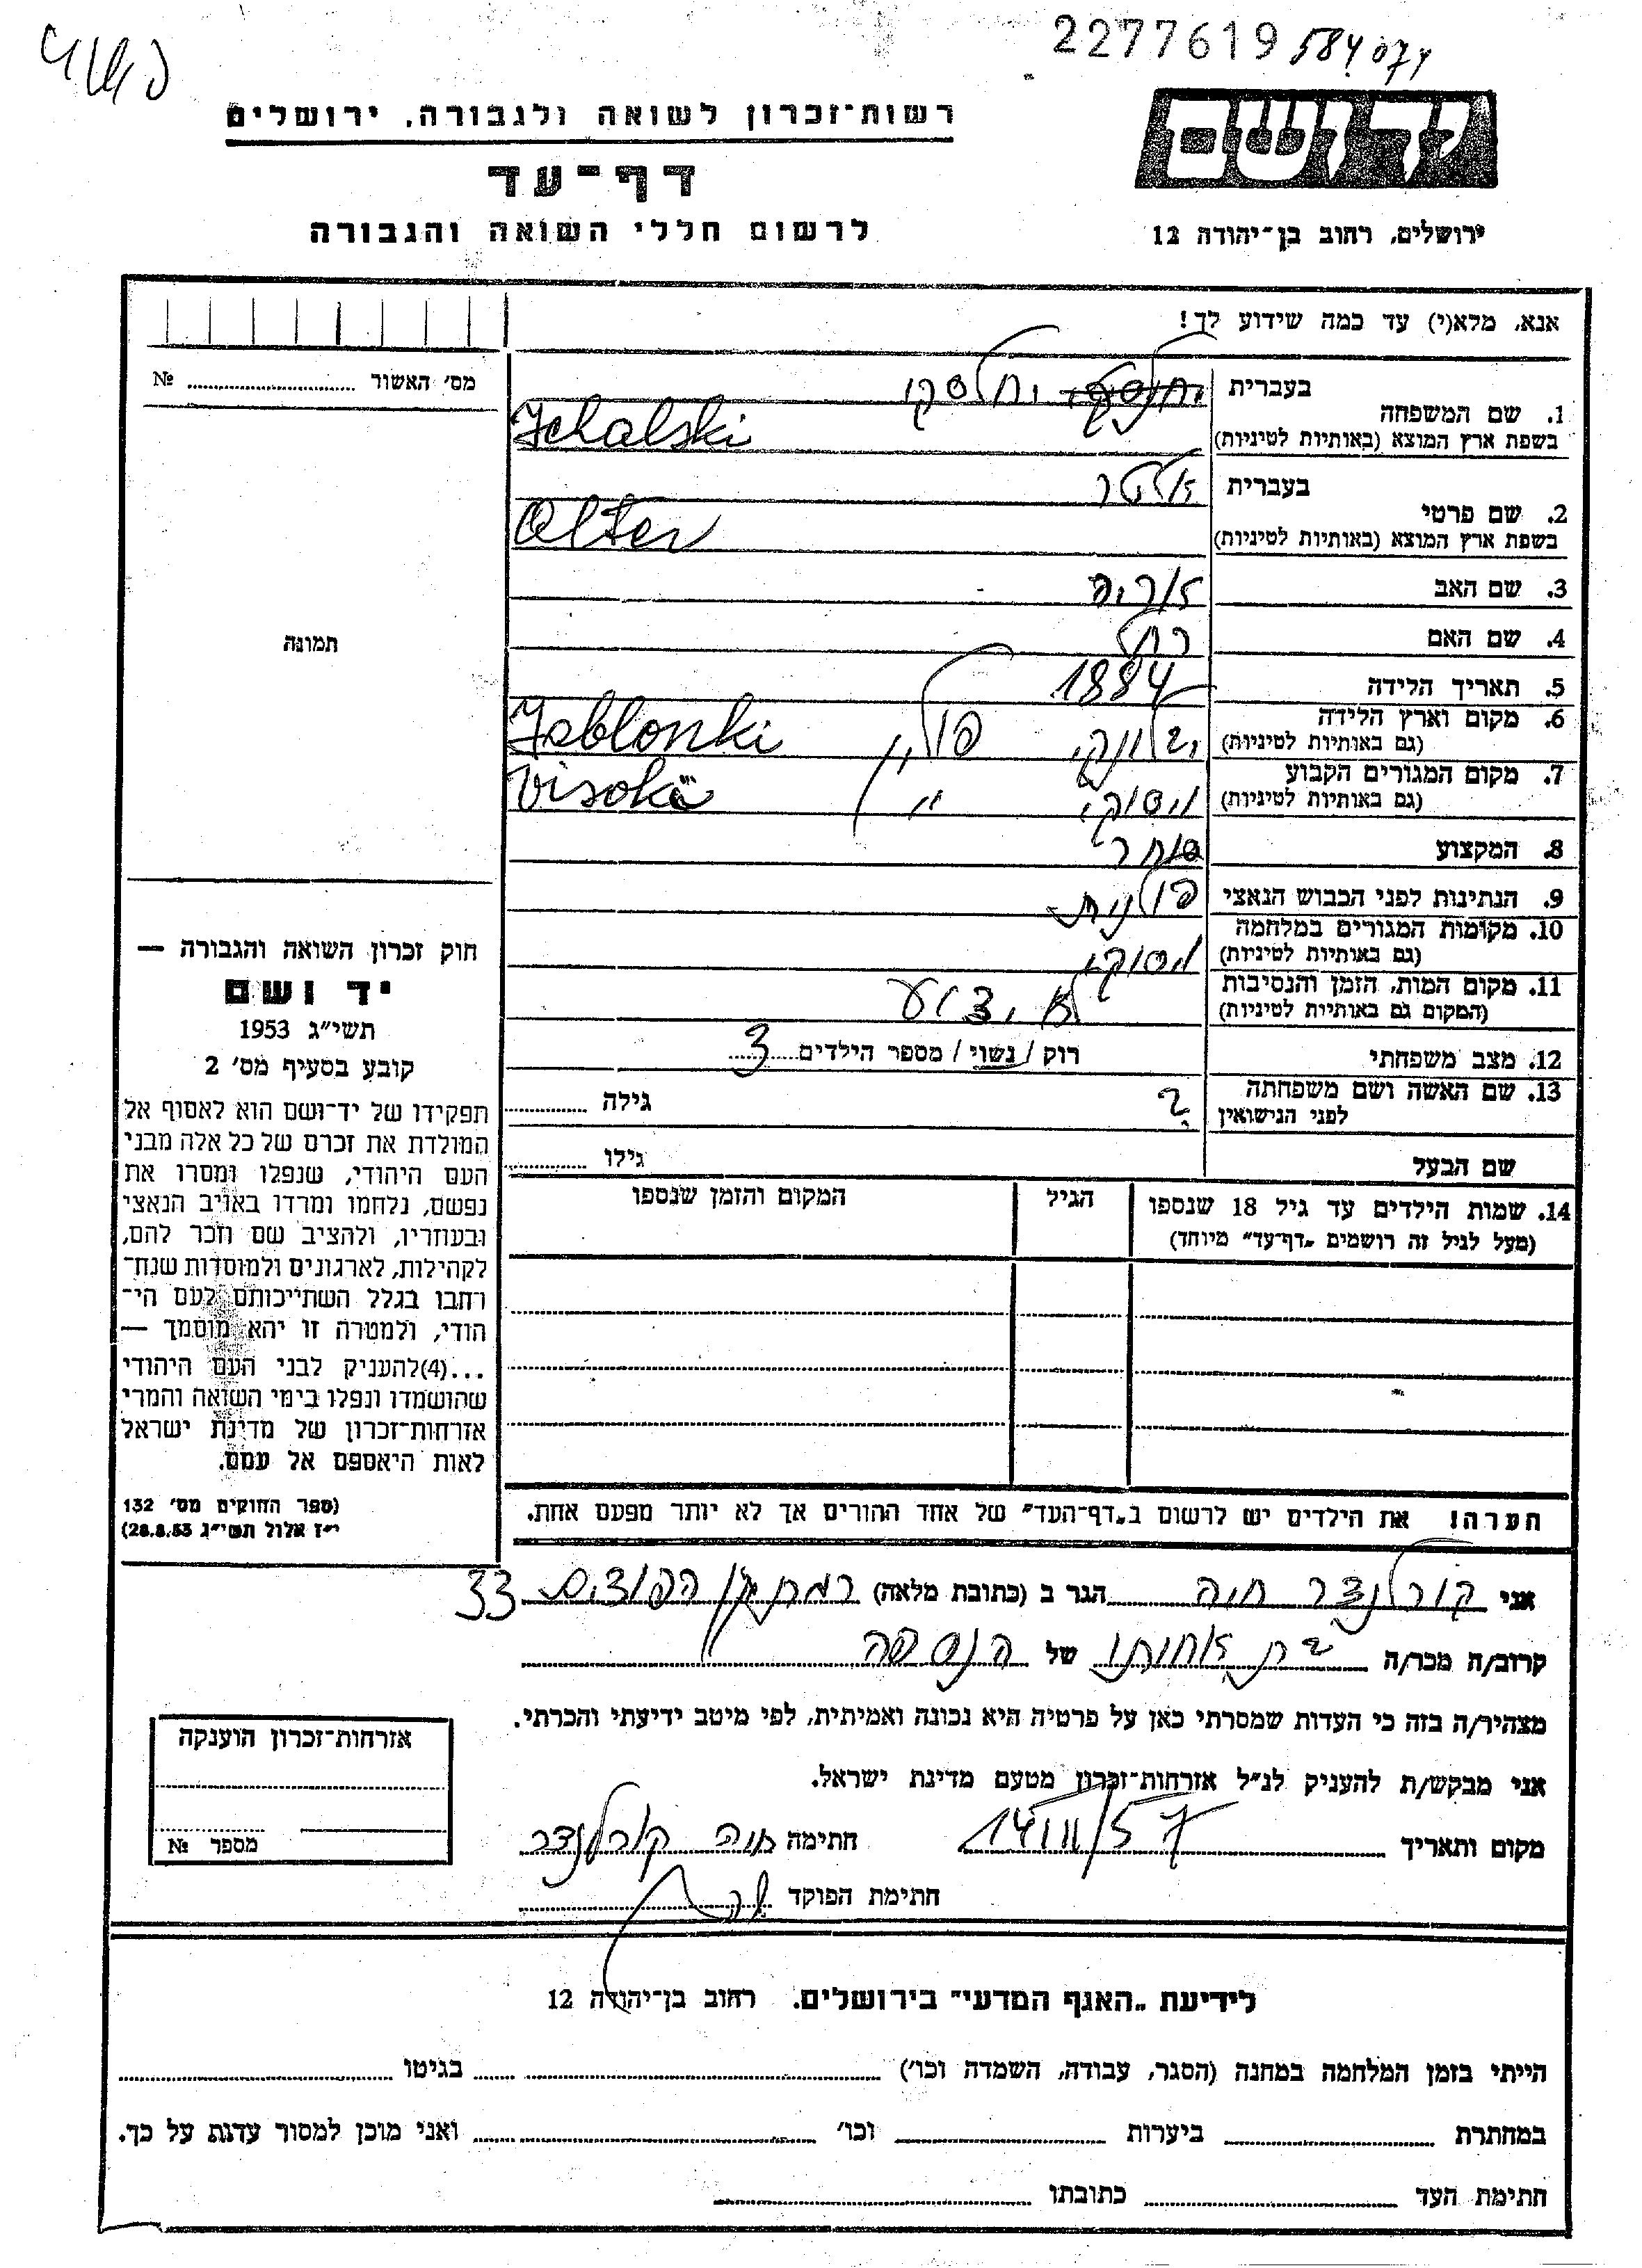 2277619 584 074
רשות־זכרון לשואה ולגבורה, ירושלים
דף־עד
לרשום חללי השואה והגבורה
יד ושם
ירושלים, רחוב בן־יהודה 12
אנא, מלא(י) עד כמה שידוע לך!
מס' האשור № ..........
1. שם המשפחה
בעברית יחלסקי יחלסקי
בשפת ארץ המוצא (באותיות לטיניות) Jchalski
2. שם פרטי
בעברית אלטר
בשפת ארץ המוצא (באותיות לטיניות) Olter
3. שם האב אריה
4. שם האם רחל
תמונה
5. תאריך הלידה 1884
6. מקום וארץ הלידה
(גם באותיות לטיניות) יבלונקי פולין Jablonki
7. מקום המגורים הקבוע
(גם באותיות לטיניות) ויסוקי " Visoki
8. המקצוע סוחר
9. הנתינות לפני הכבוש הנאצי פולנית
10. מקומות המגורים במלחמה
(גם באותיות לטיניות) ויסוקי
11. מקום המות, הזמן והנסיבות
(המקום גם באותיות לטיניות) לא ידוע
12. מצב משפחתי רוק / נשוי / מספר הילדים 3
13. שם האשה ושם משפחתה
לפני הנישואין ? גילה ..........
שם הבעל גילו ..........
14. שמות הילדים עד גיל 18 שנספו
(מעל לגיל זה רושמים „דף־עד" מיוחד)
הגיל
המקום והזמן שנספו
חוק זכרון השואה והגבורה —
יד ושם
תשי"ג 1953
קובע בסעיף מס' 2
תפקידו של יד־ושם הוא לאסוף אל
המולדת את זכרם של כל אלה מבני
העם היהודי, שנפלו ומסרו את
נפשם, נלחמו ומרדו באויב הנאצי
ובעוזריו, ולהציב שם וזכר להם,
לקהילות, לארגונים ולמוסדות שנח־
רחבו בגלל השתייכותם לעם הי־
הודי, ולמטרה זו יהא מוסמך —
...(4) להעניק לבני העם היהודי
שהושמדו ונפלו בימי השואה והמרי
אזרחות־זכרון של מדינת ישראל
לאות היאספם אל עמם.
(ספר החוקים מס' 132
י"ז אלול תשי"ג 28.8.53)
הערה! את הילדים יש לרשום ב„דף־העד" של אחד ההורים אך לא יותר מפעם אחת.
אני קורלנדר חיה הגר ב (כתובת מלאה) רמת גן הפודים 33
קרוב/ה מכר/ה בת אחותו של הנספה
מצהיר/ה בזה כי העדות שמסרתי כאן על פרטיה היא נכונה ואמיתית, לפי מיטב ידיעתי והכרתי.
אני מבקש/ת להעניק לנ"ל אזרחות־זכרון מטעם מדינת ישראל.
מקום ותאריך 14/II/57 חתימה חיה קורלנדר
חתימת הפוקד
אזרחות־זכרון הוענקה
מספר №
לידיעת „האגף המדעי" בירושלים. רחוב בן־יהודה 12
הייתי בזמן המלחמה במחנה (הסגר, עבודה, השמדה וכו') .......... בגיטו ..........
במחתרת .......... ביערות .......... וכו' .......... ואני מוכן למסור עדות על כך.
חתימת העד .......... כתובתו ..........